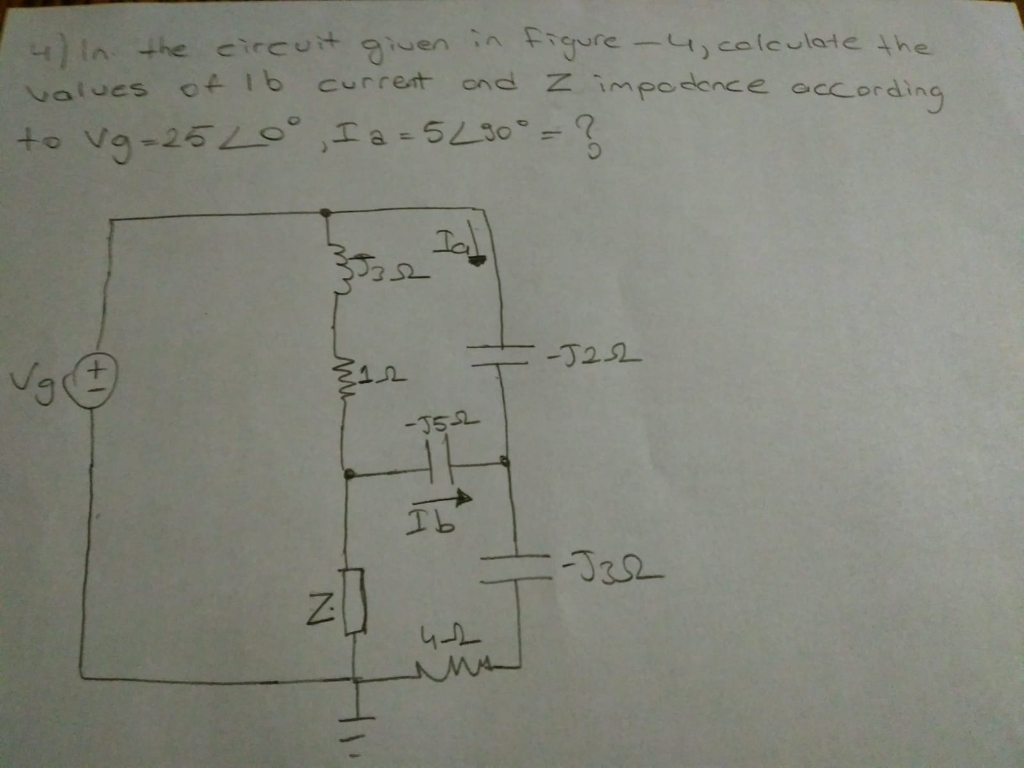 4) In the circuit given in Figure -4, calculate the
values of Ib current and Z impedance according
to Vg=25∠0°, Ia=5∠90° = ?
Ia
J3Ω
-J2Ω
Vg
+
-
1Ω
-J5Ω
Ib
-J3Ω
Z
4Ω